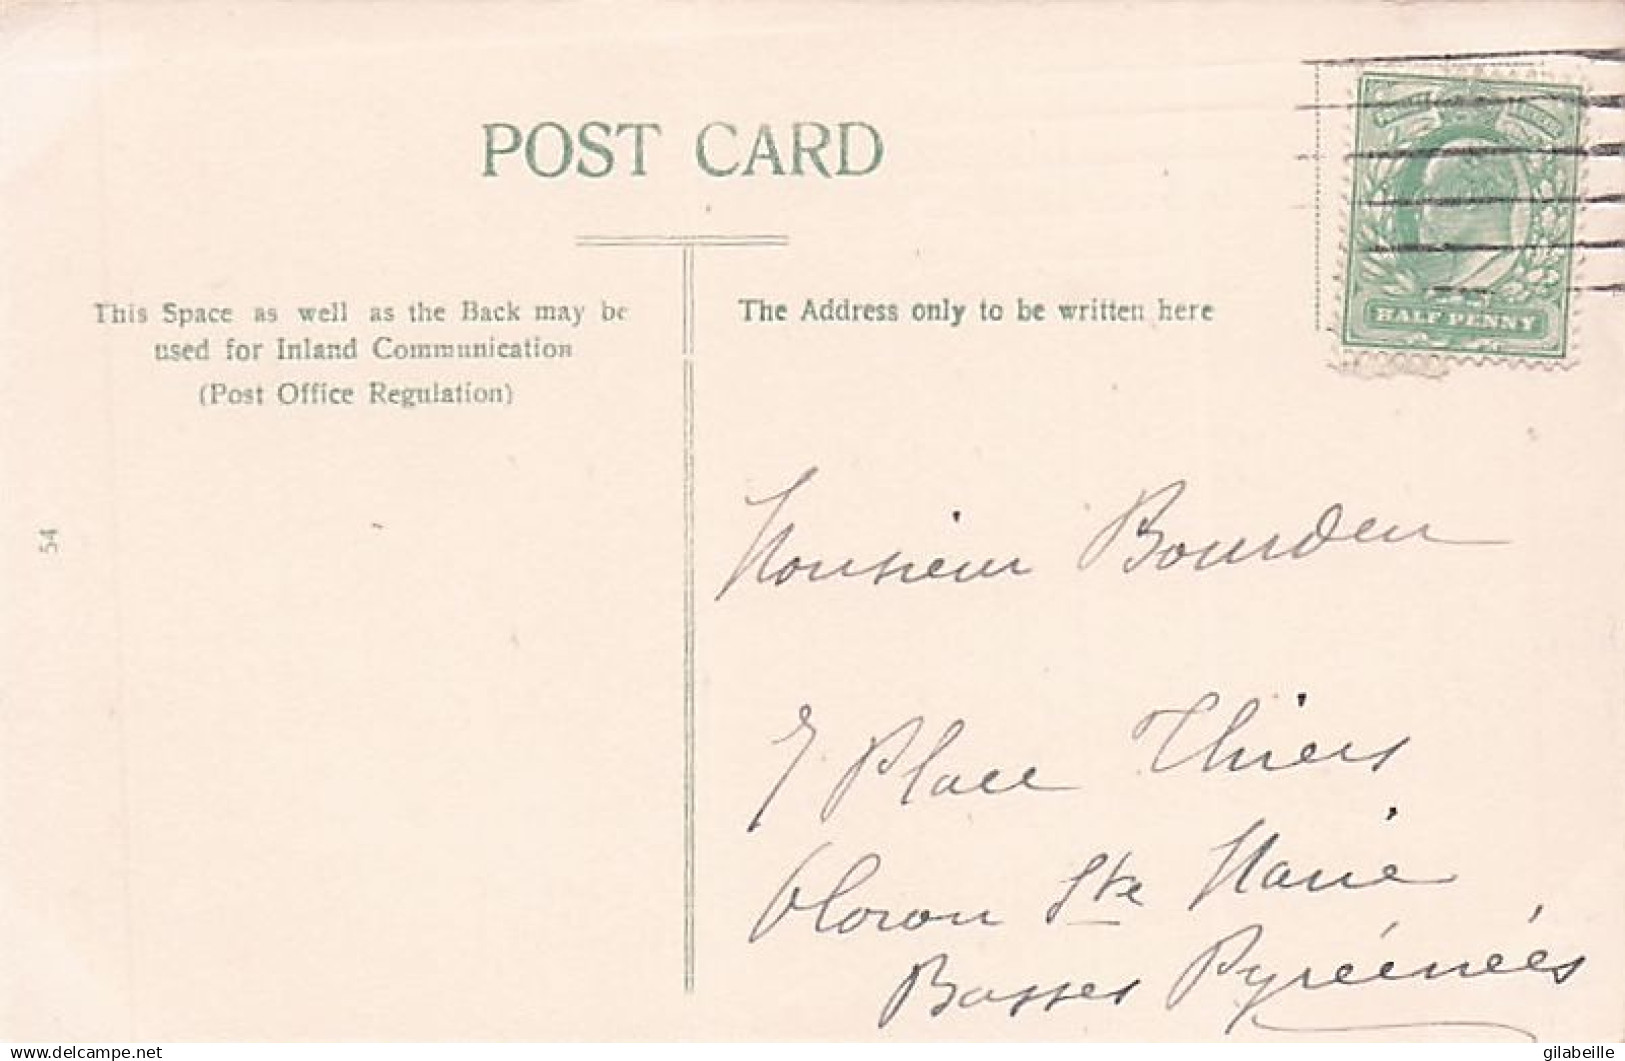 POST CARD
This Space as well as the Back may be
used for Inland Communication
(Post Office Regulation)
The Address only to be written here
HALF PENNY
54
Monsieur Bourden
7 Place Thiers
Oloron Ste Marie
Basses Pyréenéés
delcampe.net
gilabeille